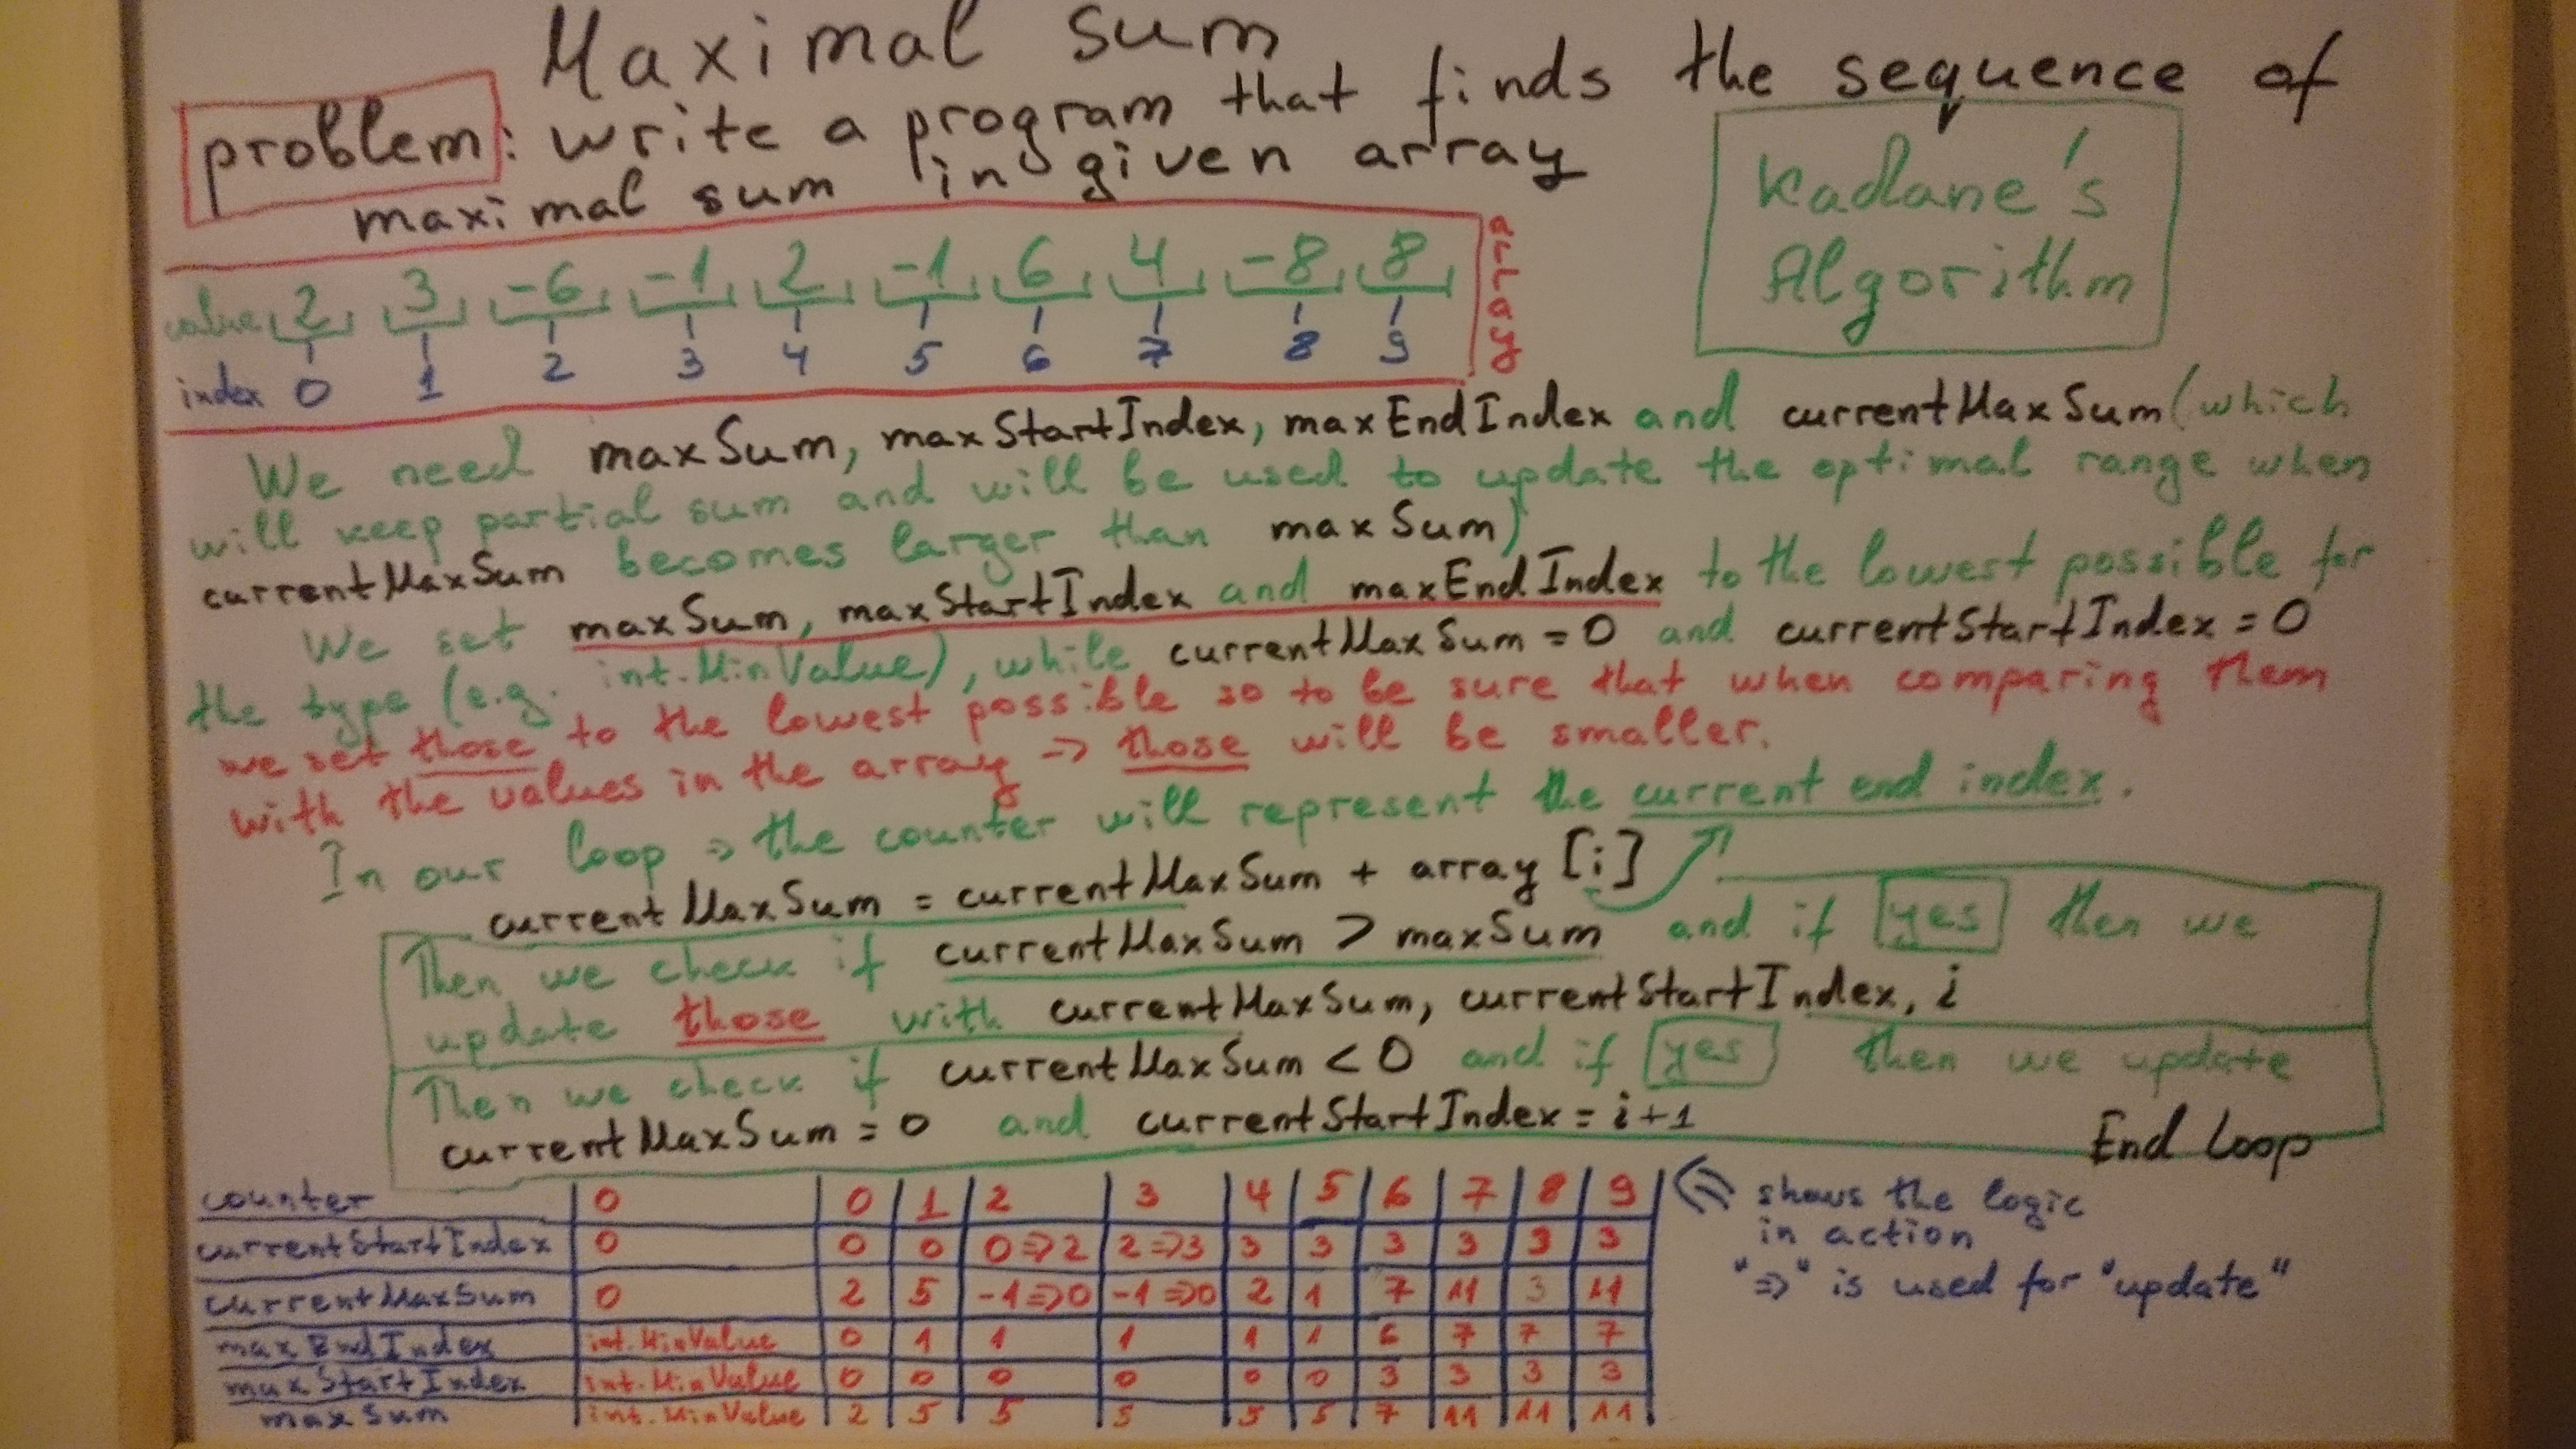 Maximal sum
problem: write a program that finds the sequence of
maximal sum in given array
Kadane's
Algorithm
value 2 3 -6 -1 2 -1 6 4 -8 8
index 0 1 2 3 4 5 6 7 8 9
array
We need maxSum, maxStartIndex, maxEndIndex and currentMaxSum (which
will keep partial sum and will be used to update the optimal range when
currentMaxSum becomes larger than maxSum)
We set maxSum, maxStartIndex and maxEndIndex to the lowest possible for
the type (e.g. int.MinValue), while currentMaxSum = 0 and currentStartIndex = 0
we set those to the lowest possible so to be sure that when comparing them
with the values in the array => those will be smaller.
In our loop => the counter will represent the current end index.
currentMaxSum = currentMaxSum + array [i]
Then we check if currentMaxSum > maxSum and if yes then we
update those with currentMaxSum, currentStartIndex, i
Then we check if currentMaxSum < 0 and if yes then we update
currentMaxSum = 0 and currentStartIndex = i+1
End Loop
counter 0 0 1 2 3 4 5 6 7 8 9
currentStartIndex 0 0 0 0=>2 2=>3 3 3 3 3 3 3
currentMaxSum 0 2 5 -1=>0 -1=>0 2 1 7 11 3 11
maxEndIndex int.MinValue 0 1 1 1 1 1 6 7 7 7
maxStartIndex int.MinValue 0 0 0 0 0 0 3 3 3 3
maxSum int.MinValue 2 5 5 5 5 5 7 11 11 11
<= shows the logic
in action
"=>" is used for "update"